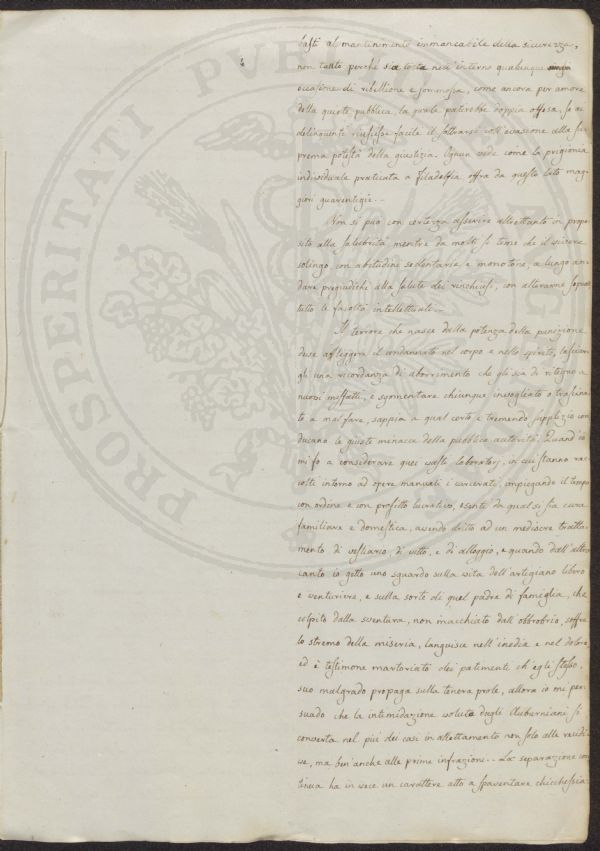 basti al mantenimento immancabile della sicurezza,
non tanto perchè sia tolta nell'interno qualunque
occasione di ribellione e sommossa, come ancora per amore
della quiete pubblica, la quale patirebbe doppia offesa, se ai
delinquenti riuscisse facile il sottrarsi coll'evasione alla su-
prema potestà della giustizia. Ognun vede come la prigionia
individuale praticata a Filadelfia offra da questo lato mag-
giori guarentigie. –
Non si può con certezza asserire altrettanto in propo-
sito alla salubrità mentre da molti si teme che il vivere
solingo con abitudine sedentaria e monotona, a lungo an-
dare pregiudichi alla salute dei rinchiusi, con alterarne sopra
tutto le facoltà intellettuali. –
Il terrore che nasce dalla potenza della punizione
deve affliggere il condannato nel corpo e nello spirito, lasciar
gli una ricordanza di aborrimento che gli sia di ritegno a
nuovi misfatti, e sgomentare chiunque invogliato o trascina-
to a mal fare, sappia a qual certo e tremendo supplizio con
ducano le giuste minacce della pubblica autorità. Quand'io
mi fo a considerare quei vasti laboratorj, in cui stanno rac-
colti intorno ad opere manuali i carcerati, impiegando il tempo
con ordine e con profitto lucrativo, esenti da qual si sia cura
familiare e domestica, avendo dritto ad un mediocre tratta-
mento di vestiario, di vitto, e di alloggio, e quando dall'altro
canto io getto uno sguardo sulla vita dell'artigiano libero
e venturiere, e sulla sorte di quel padre di famiglia, che
colpito dalla sventura, non macchiato dall'obbrobrio, soffre
lo stremo della miseria, languisce nell'inedia e nel dolore,
ed è testimone martoriato dei patimenti ch'egli stesso
suo malgrado propaga sulla tenera prole, allora io mi per-
suado che la intimidazione voluta dagli Auburniani si
converta nel più dei casi in allettamento non solo alle recidi-
ve, ma ben'anche alle prime infrazioni. – La separazione con
tinua ha in vece un carattere atto a spaventare chicchessia:
PROSPERITATI PVBLICAE